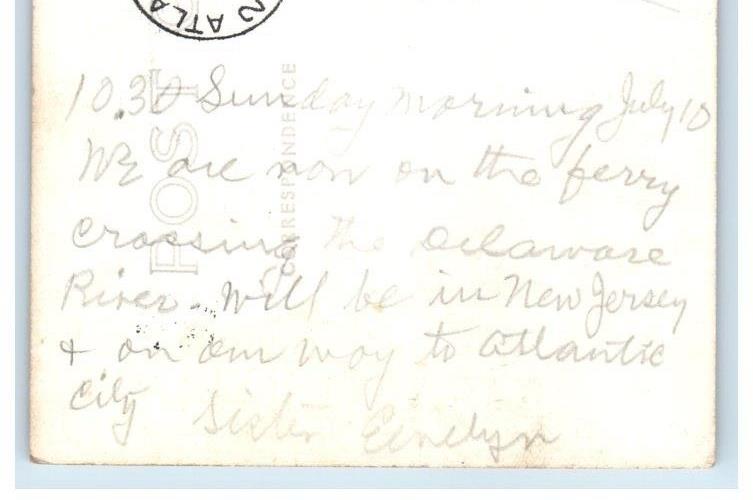 ATLA
POST
CORRESPONDENCE
10.30 Sunday morning July 10
We are now on the ferry
crossing the Delaware
River - Will be in New Jersey
& on our way to Atlantic
City
Sister